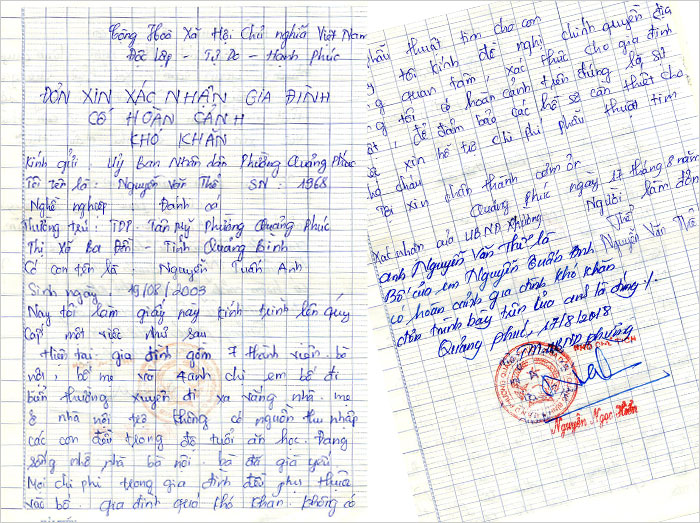 Cộng Hoà Xã Hội Chủ nghĩa Việt Nam
Độc lập - Tự Do - Hạnh phúc
ĐƠN XIN XÁC NHẬN GIA ĐÌNH
CÓ HOÀN CẢNH
KHÓ KHĂN
Kính gửi : Uỷ Ban Nhân dân Phường Quảng Phúc
Tôi tên là : Nguyễn Văn Thế SN : 1968
Nghề nghiệp : Đánh cá
Thường trú : TDP - Tân Mỹ Phường Quảng Phúc
Thị Xã Ba Đồn - Tỉnh Quảng Bình
Có con tên là : Nguyễn Tuấn Anh
Sinh ngày 19/08/2003
Nay tôi làm giấy này kính trình lên quý
Cấp một việc như sau
Hiện tại : gia đình gồm 7 thành viên bà
nội , bố mẹ và 4 anh chị em bố đi
biển thường xuyên đi xa vắng nhà . mẹ
ở nhà nội trợ không có nguồn thu nhập
các con đều trong độ tuổi ăn học . Đang
sống nhờ nhà bà nội . bà đã già yếu
Mọi chi phí trong gia đình đều phụ thuộc
vào bố gia đình quá khó khăn . không có
phẫu thuật tim cho con
tôi kính đề nghị chính quyền địa
g quan tâm , xác thực cho gia đình
g tôi có hoàn cảnh trên đúng là sự
, để đảm bảo các hồ sơ cần thiết cho
xin hỗ trợ chi phí phẫu thuật tim
cháu
Tôi xin chân thành cảm ơn
Quảng Phúc ngày 17 tháng 8 năm
Người làm đơn
Thế
Nguyễn Văn Thế
Xác nhận của UBND Phường
anh Nguyễn Văn Thế là
Bố của em Nguyễn Tuấn Anh
có hoàn cảnh gia đình khó khăn
đơn trình bày trên của anh là đúng ./.
Quảng Phúc, 17/8/2018
TM UBND phường
PHÓ CHỦ TỊCH
Nguyễn Ngọc Hiển